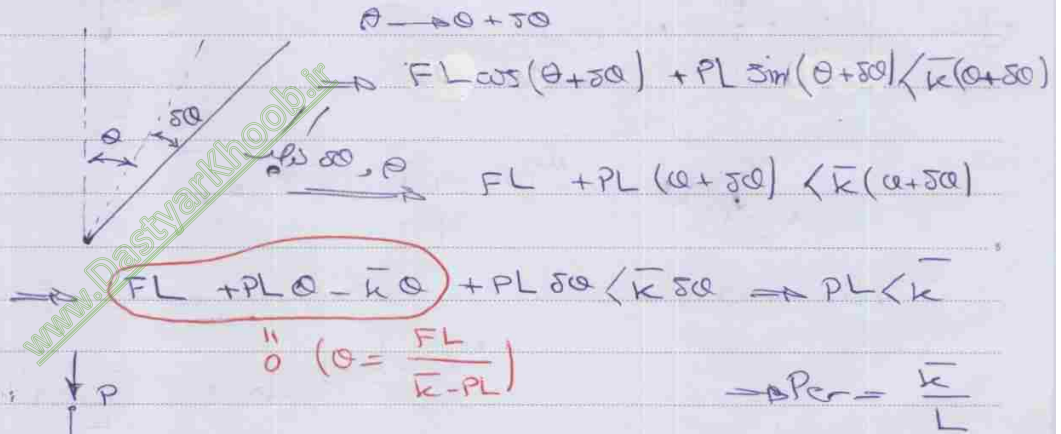 θ → θ + δθ
⇒ FL cos(θ+δθ) + PL Sin(θ+δθ) < k̄(θ+δθ)
θ δθ
δθ, θ ⇒ FL + PL (θ+δθ) < k̄(θ+δθ)
⇒ FL + PL θ - k̄ θ + PL δθ < k̄ δθ ⇒ PL < k̄
" 0 (θ = FL / k̄ - PL)
P ⇒ Pcr = k̄ / L
www.DastyarKhoob.ir